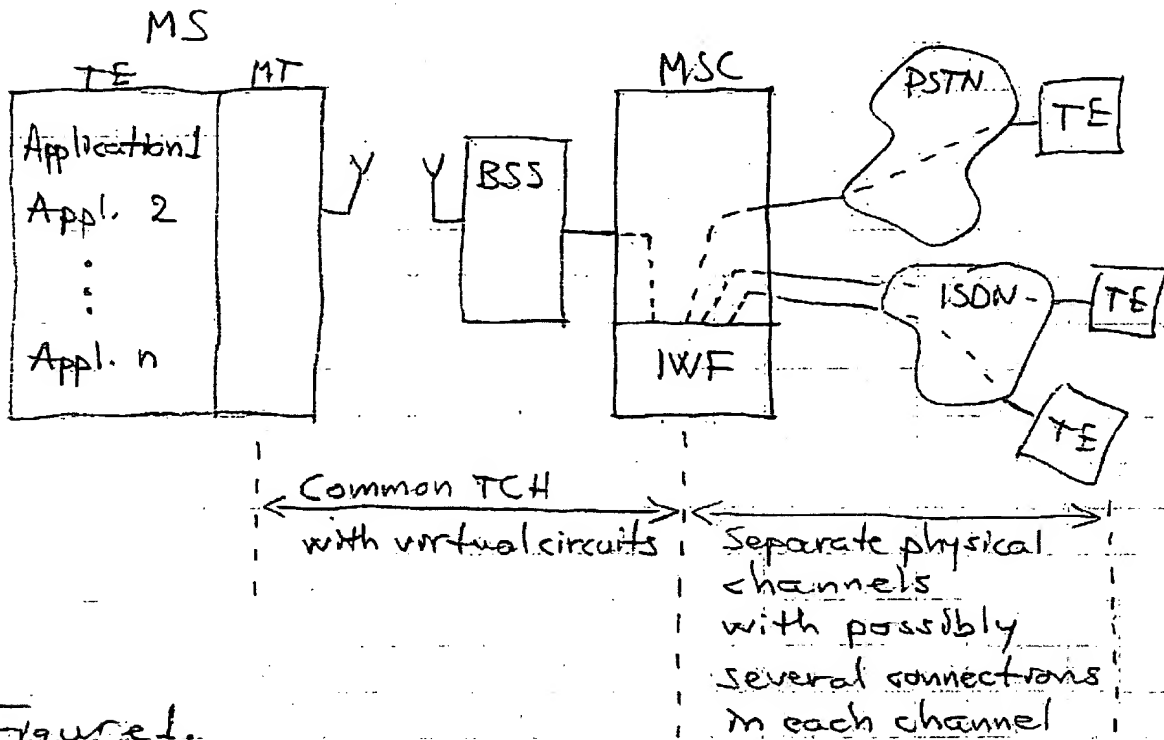 MS
TE MT
Application1
Appl. 2
Appl. n
BSS
MSC
IWF
PSTN
TE
ISDN
TE
TE
Common TCH
with virtual circuits
Separate physical
channels
with possibly
several connections
in each channel
Figure 1.